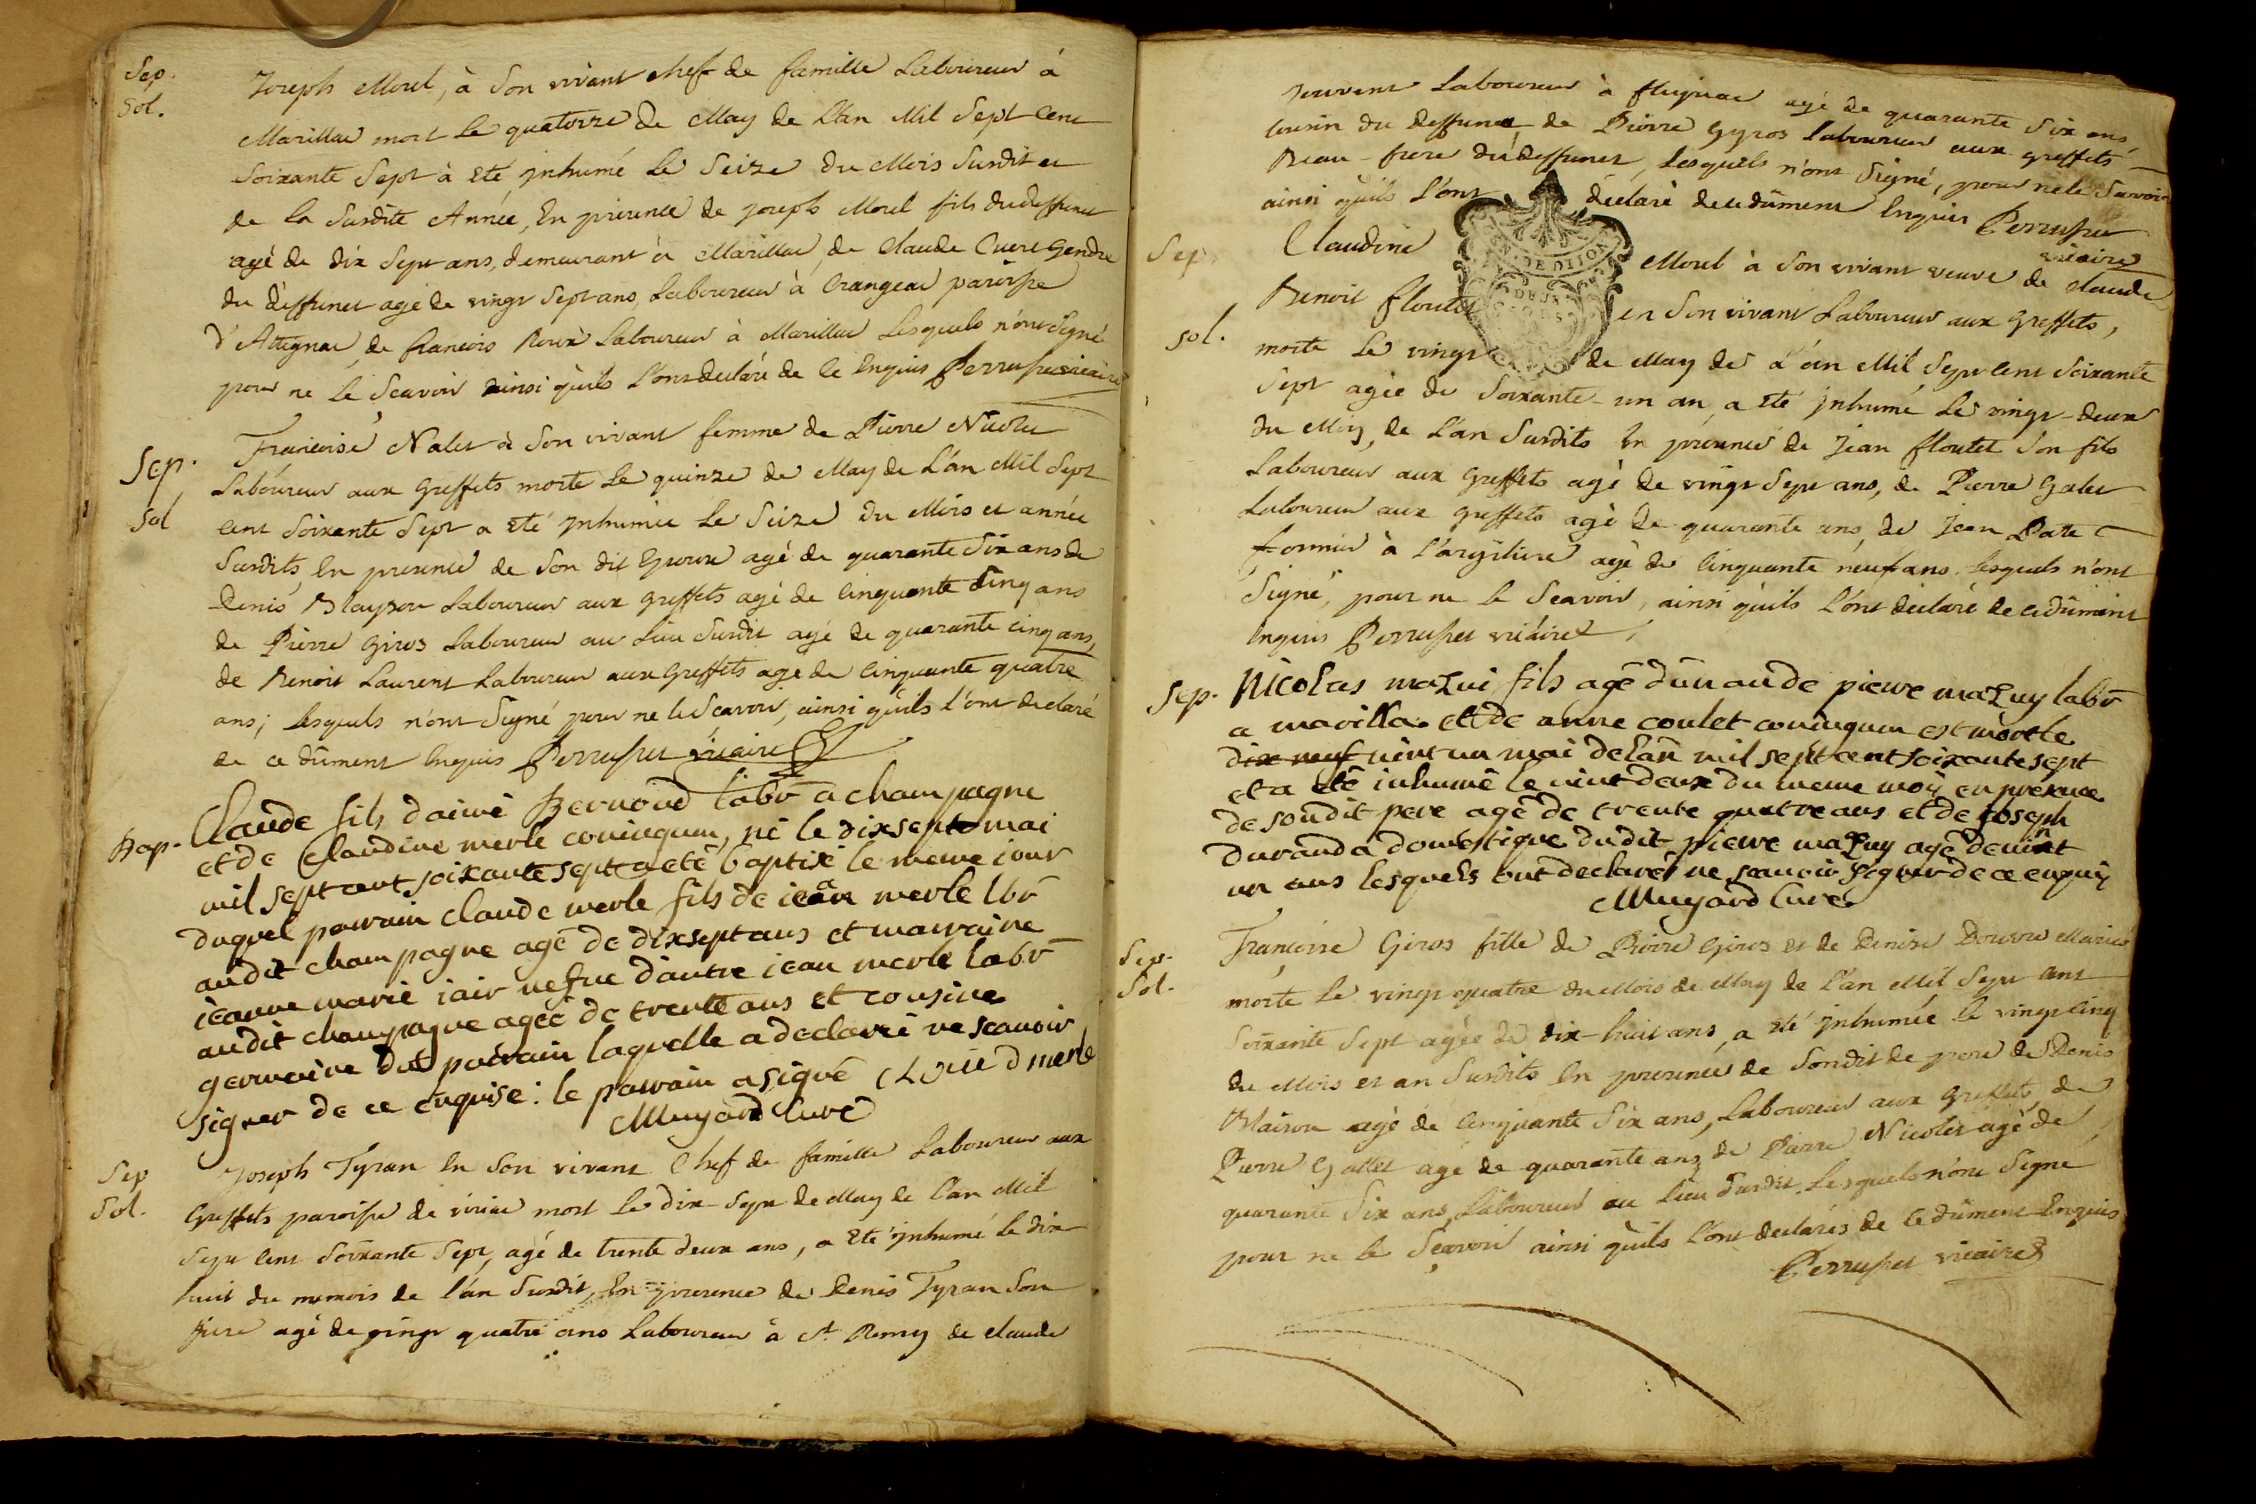 Sep.
Sol.
Joseph Morel, à Son vivant chef de famille Laboureur à
Marillac mort Le quatorze de May de L'an Mil Sept Cent
Soixante Sept à Eté jnhumé Le Seize du Mois Susdit et
de La Susdite Année, En présence de joseph Morel fils du deffunct
agé de dix Sept ans, demeurant à Marillac, de Claude Cuert Gendre
du deffunct agé de vingt Sept ans, Laboureur à Crangeac paroisse
d'Attignac, de francois Roux Laboureur à Marillac Lesquels n'ont Signé
pour ne Le Scavoir ainsi qu'ils L'ont declaré de Ce Enquis Perruset vicaire
Sep.
Sol
Francoise Nalet à Son vivant femme de Pierre Nicolet
Laboureur aux Greffets morte Le quinze de May de L'an Mil Sept
Cent Soixante Sept a Eté jnhumée Le Seize du Mois et année
Susdits, En presence de Son dit Epoux agé de quarante Six ans de
Denis Blayson Laboureur aux Greffets agé de Cinquante Cinq ans
de Pierre Giros Laboureur au Lieu Susdit agé de quarante cinq ans,
de Benoit Laurent Laboureur aux Greffets agé de Cinquante quatre
ans; Lesquels n'ont Signé pour ne le Scavoir, ainsi qu'ils L'ont declaré
de ce dûment Enquis Perruset vicaire
Bap.
Claude fils d'aimé Bernoud labr a champagne
et de Claudine merle coniugum, né le dix sept mai
mil sept cent soixante sept a eté baptisé le meme iour
duquel parrain claude merle fils de iean merle lbr
audit champagne agé de dix sept ans et marraine
ieanne marie iair vefue d'autre iean merle labr
audit champagne agée de trente ans et cousine
germaine dud parrain laquelle a declaré ne scauoir
signer de ce enquise: le parrain a signé CLoue D merle
Muyard Curé
Sep
Sol.
Joseph Tyran En Son vivant Chef de famille Laboureur aux
Greffets paroisse de virieu mort Le dix-Sept de May de L'an Mil
Sept Cent Soixante Sept, agé de trente deux ans, a Eté jnhumé le dix
huit du mmois de L'an Susdit, En presence de Denis Tyran Son
frere agé de vingt quatre ans Laboureur à St Remy de Claude
Jouvent Laboureur à flujnac agé de quarante Six ans,
Cousin du deffunct, de Pierre Gyros Laboureur aux Greffets
Beau-frere du deffunct, Lesquels n'ont Signé, pour ne le Scavoir
ainsi qu'ils L'ont déclaré de ce dûment Enquis Perruset
vicaire
Sep.
sol.
Claudine Morel à Son vivant veuve de Claude
Benoit floutet en Son vivant Laboureur aux Greffets,
morte Le vingt de May de L'an Mil Sept Cent Soixante
Sept agée de Soixante-un an, a Eté jnhumé Le vingt-deux
du Mois, de L'an Susdits En présence de Jean floutet Son fils
Laboureur aux Greffets agé de vingt Sept ans, de Pierre Galet
Laboureur aux Greffets agé de quarante ans, de Jean Pate
fermier à L'argiliere agé de Cinquante neuf ans. Lesquels n'ont
Signé, pour ne Le Scavoir, ainsi qu'ils L'ont déclaré de ce dûment
Enquis Perruset vicaire
GEN. DE DIJON
DEUX
SOLS
Sep.
Nicolas mazui fils agé d'un an de pierre mazuy labr
a marilla et de anne coulet coniugum est mort le
dix neuf vint un mai de l'an mil sept cent soixante sept
et a eté inhumé le vint deux du meme moi en presence
de soudit pere agé de trente quatre ans et de joseph
durand a domestique dudit pierre mazuy agé de vint
un ans lesquels ont declarés ne scauoir signer de ce enquis
Muyard Curé
Sep.
Sol.
Francoise Giros fille de Pierre Giros et de Denise Douvre Mariés
morte Le vingt quatre du Mois de May de L'an Mil Sept Cent
Soixante Sept agée de dix-huit ans, a Eté jnhumée le vingt Cinq
du Mois et an Susdits En presence de Sondit de pere de Denis
Blaison agé de Cinquante Six ans, Laboureur aux Greffets, de
Pierre Gallet agé de quarante ans de Pierre Nicolet agé de
quarante Six ans Laboureur au Lieu Susdit Lesquels n'ont Signé
pour ne le Scavoir ainsi qu'ils L'ont declarés de ce dûment Enquis
Perruset vicaire